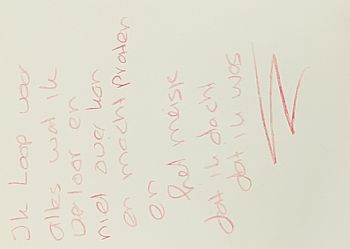 Ik loop voor
alles wat ik
verloor en
niet over kon
en mocht praten
en
het meisje
dat ik dacht
dat ik was